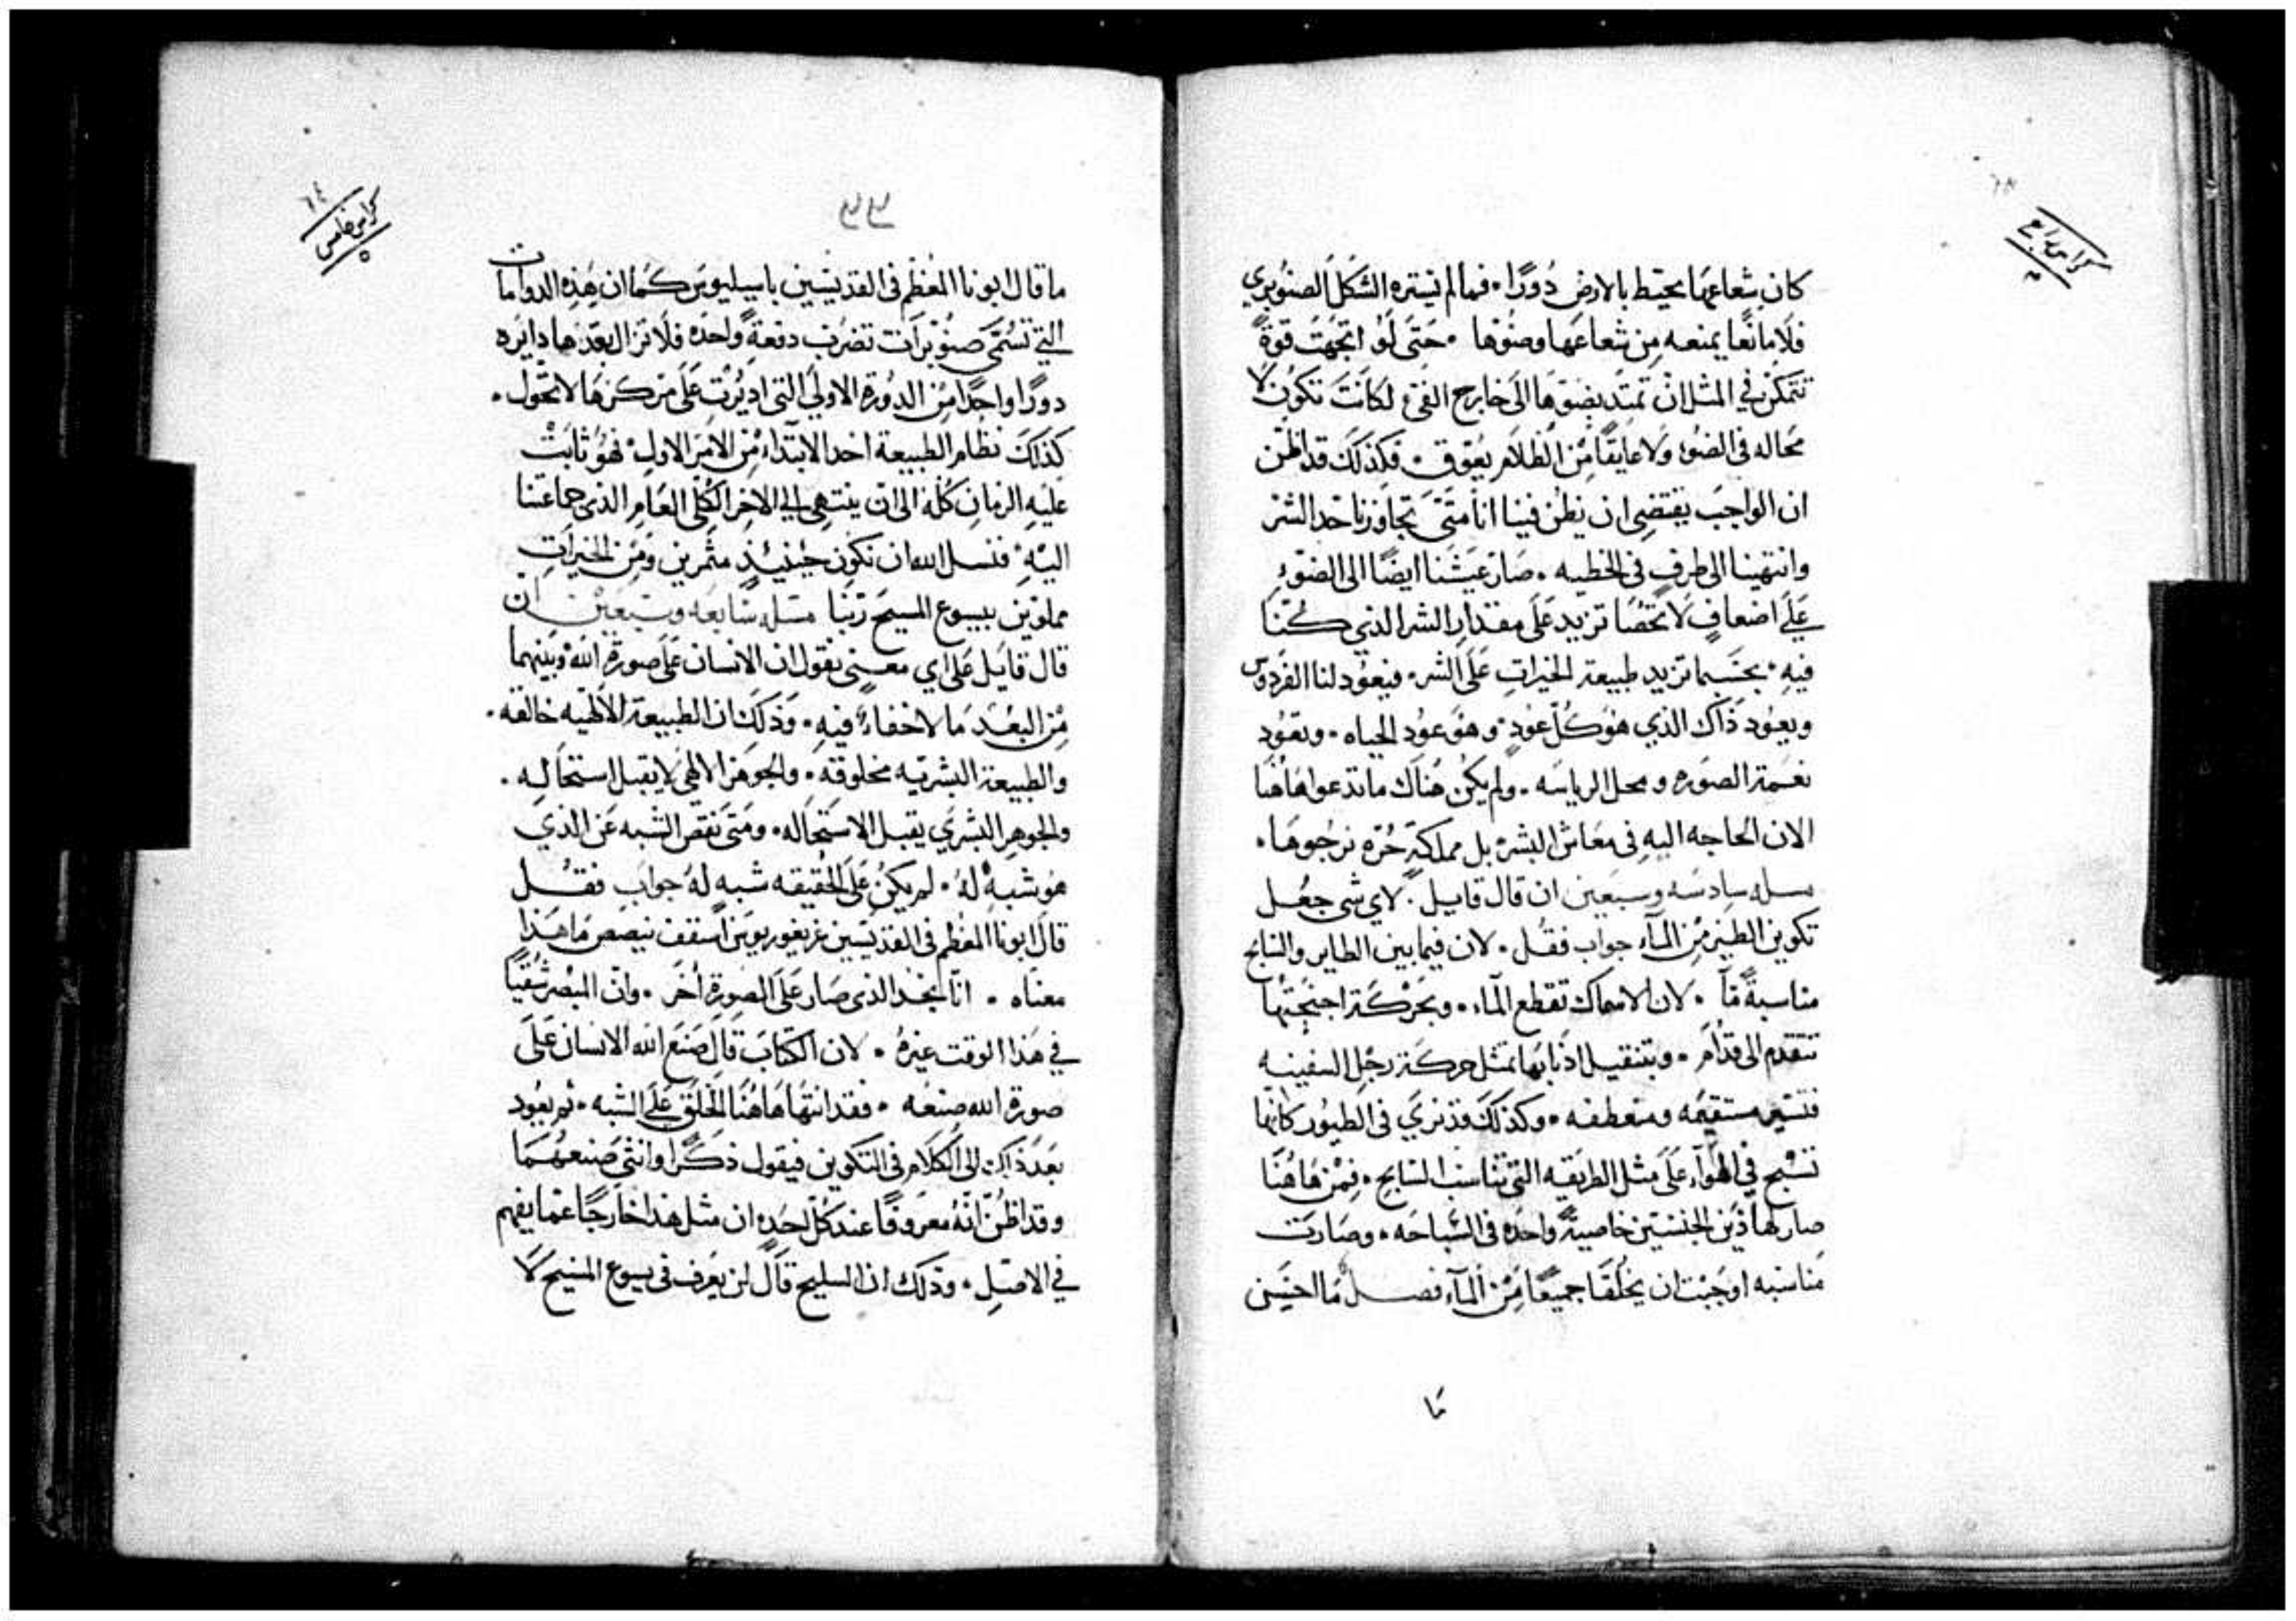 كراس رابع
كان شعاعها يحيط بالارض دورًا . فما لم يستره الشكل الصنوبري
فلا مانعًا يمنعه من شعاعها وضوها . حتى لو اتجهت قوةً
تتمكن في المثل ان تمتد بضوها الى خارج الفئ لكانت تكون لا
محاله في الضوء ولا عايقًا من الظلام يعوق . فكذلك قد اظن
ان الواجب يقتضي ان نظن فينا انا متى تجاوزنا حد الشر
وانتهينا الى طرف في الخطيه . صار عيشنا ايضًا الى الضوء
على اضعاف لا تحصا تزيد على مقدار الشر الذي كنا
فيه . بحسبما تزيد طبيعة الخيرات على الشر . فيعود لنا الفردوس
ويعود ذاك الذي هو كل عود . وهو عود الحياه . وتعود
نعمة الصوره ومحل الرياسه . ولم يكن هناك ما تدعوا هاهنا
الان الحاجه اليه في معاش البشر بل مملكةٍ حره نرجوها .
مسله سادسه وسبعين ان قال قايل . لاي شي جعل
تكوين الطير من المآء جواب فقل . لان فيما بين الطاير والسابح
مناسبةً مّا . لان الاسماك تقطع المآء . وبحركة اجنحتها
تتقدم الى قدام . وبتنقيل اذنابها تمثل حركة رجل السفينه
فتسير مستقيمه ومنعطفه . وكذلك قد نري في الطيور كانها
تسبح في الهوآء على مثل الطريقه التي تناسب السابح . فمن هاهنا
صار لهاذين الجنسين خاصيةً واحده في السباحه . وصارت
مناسبه اوجبت ان يخلقا جميعًا من المآء فصل ما احسن
ما
كراس خامس
٥
ما قال ابونا المعظم في القديسين باسيليوس كما ان هذه الدوامات
التي تسمى صنوبرات تضرب دفعةً واحده فلا تزال بعدها دايره
دورًا واحدًا من الدورة الاولي التي اديرت على مركزها لا تحول .
كذلك نظام الطبيعة اخد الابتداء من الامر الاول . فهو ثابت
عليه الزمان كله الى ان ينتهي الي الاخر الكلي العام الذي جماعتنا
اليه . فنسل الله ان نكون حينيذٍ مثمرين ومن الخيرات
مملوين بيسوع المسيح ربنا مسله سابعه وسبعين ان
قال قايل على اي معنى نقول ان الانسان على صورة الله وبينهما
من البعد ما لا خفاءً فيه . وذلك ان الطبيعة الالهيه خالقه .
والطبيعة البشريه مخلوقه . والجوهر الالهي لا يقبل استحاله .
والجوهر البشري يقبل الاستحاله . ومتى نقص الشبه عن الذي
هو شبهٌ له . لم يكن على الحقيقه شبه له جواب فقل
قال ابونا المعظم في القديسين غريغوريوس اسقف نيصص ما هذا
معناه . انا نجد الذي صار على الصورة اخر . وان المبصر شقيًا
في هذا الوقت غيره . لان الكتاب قال صنع الله الانسان على
صورة الله صنعه . فقد انتها هاهنا الخلق على الشبه . ثم يعود
بعد ذاك الى الكلام في التكوين فيقول ذكرًا وانثى صنعهما
وقد اظن انه معروفًا عند كل احد ان مثل هذا خارجًا عما يفهم
في الاصل . وذلك ان السليح قال لن يعرف في يسوع المسيح لا